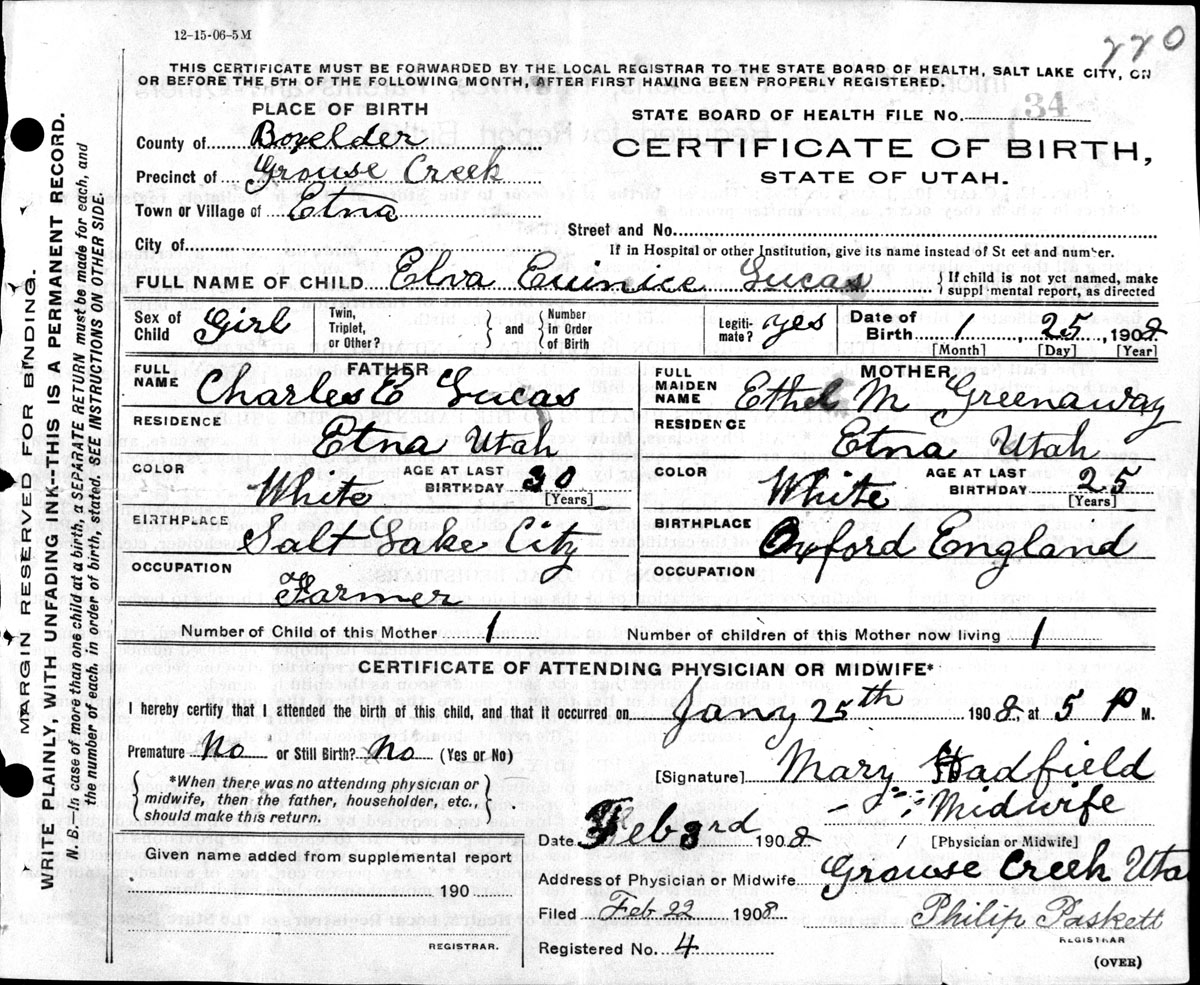 12-15-06-5M
770
THIS CERTIFICATE MUST BE FORWARDED BY THE LOCAL REGISTRAR TO THE STATE BOARD OF HEALTH, SALT LAKE CITY, ON
OR BEFORE THE 5TH OF THE FOLLOWING MONTH, AFTER FIRST HAVING BEEN PROPERLY REGISTERED.
MARGIN RESERVED FOR BINDING.
WRITE PLAINLY, WITH UNFADING INK--THIS IS A PERMANENT RECORD.
N. B. In case of more than one child at a birth, a SEPARATE RETURN must be made for each, and
the number of each, in order of birth, stated. SEE INSTRUCTIONS ON OTHER SIDE.
PLACE OF BIRTH
County of Boxelder
Precinct of Grouse Creek
Town or Village of Etna
City of
STATE BOARD OF HEALTH FILE NO. 34
CERTIFICATE OF BIRTH,
STATE OF UTAH.
Street and No.
If in Hospital or other Institution, give its name instead of St eet and number.
FULL NAME OF CHILD Elva Euinice Lucas
{If child is not yet named, make
suppl mental report, as directed
Sex of Child Girl
Twin, Triplet, or Other? } and { Number in Order of Birth
Legiti- mate? yes
Date of Birth 1, 25, 1908
[Month] [Day] [Year]
FATHER
FULL NAME Charles E Lucas
RESIDENCE Etna Utah
COLOR White AGE AT LAST BIRTHDAY 30 [Years]
BIRTHPLACE Salt Lake City
OCCUPATION Farmer
MOTHER
FULL MAIDEN NAME Ethel M Greenaway
RESIDENCE Etna Utah
COLOR White AGE AT LAST BIRTHDAY 25 [Years]
BIRTHPLACE Oxford England
OCCUPATION
Number of Child of this Mother 1 Number of children of this Mother now living 1
CERTIFICATE OF ATTENDING PHYSICIAN OR MIDWIFE*
I hereby certify that I attended the birth of this child, and that it occurred on Jany 25th 1908, at 5 P M.
Premature No or Still Birth? No (Yes or No)
{ *When there was no attending physician or
midwife, then the father, householder, etc.,
should make this return. }
[Signature] Mary Hadfield
Midwife
[Physician or Midwife]
Date Feb 3rd 1908
Address of Physician or Midwife Grouse Creek Uta
Given name added from supplemental report
190
REGISTRAR.
Filed Feb 22 1908
Philip Paskett
REGISTRAR
Registered No. 4
(OVER)